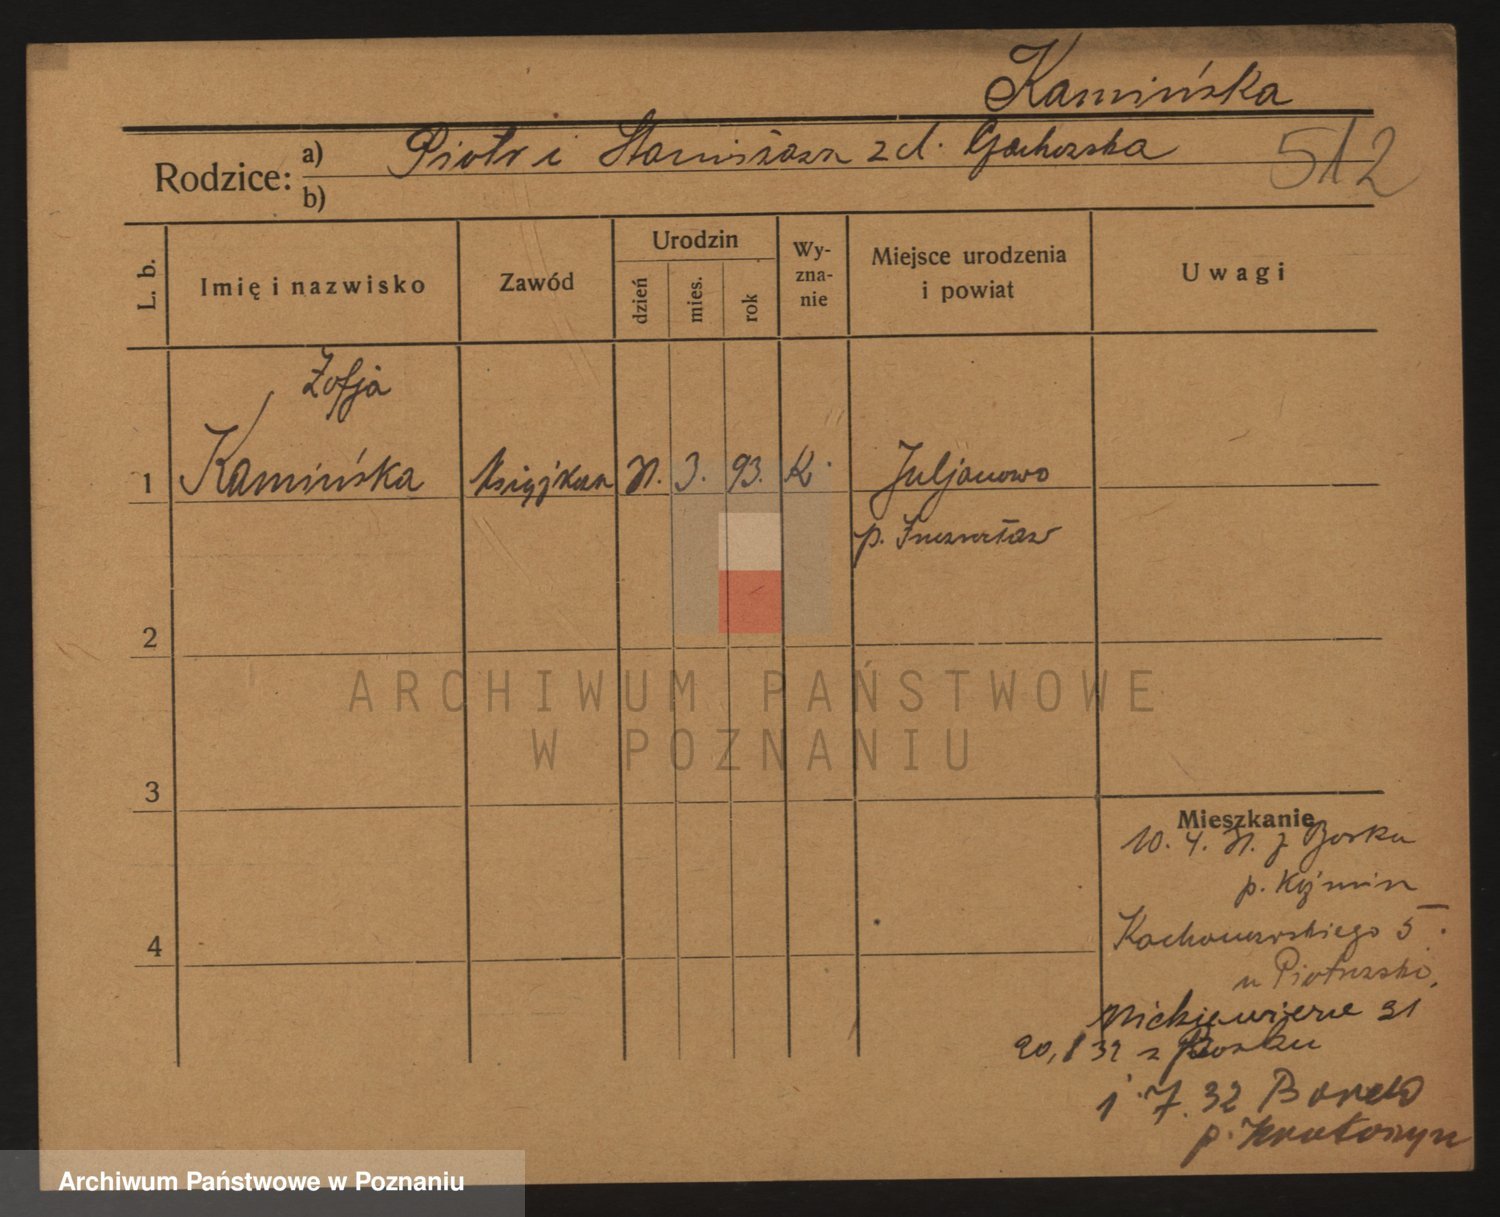 Kamińska
Rodzice: a) Piotr i Stanisława z d. 512
b)
L. b. Imię i nazwisko Zawód Urodzin dzień mies. rok Wy-zna-nie Miejsce urodzenia i powiat Uwagi
Zofja
1 Kamińska 3. 93. K. Juljanowo
p. Inowrocław
2
3
Mieszkanie
10. 4. z Borku
p. Koźmin
4 Kochanowskiego 5
u
Mickiewicza 31
20, 32 z Borku
1 7. 32 Borek
p. Krotoszyn
ARCHIWUM PAŃSTWOWE
W POZNANIU
Archiwum Państwowe w Poznaniu